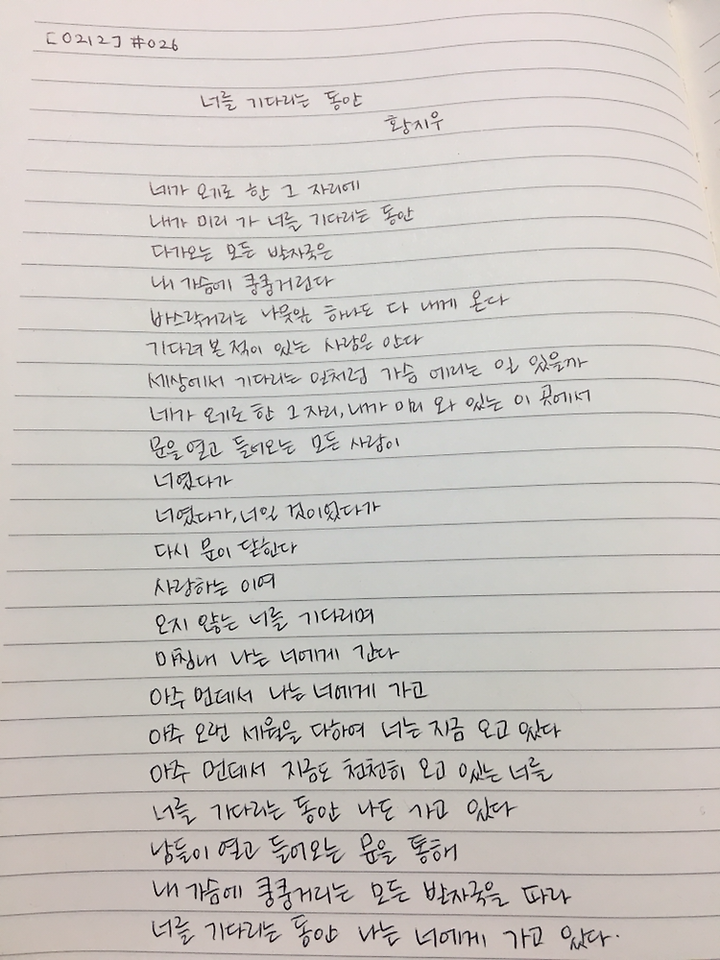 [0212] #026
너를 기다리는 동안
황지우
네가 오기로 한 그 자리에
내가 미리 가 너를 기다리는 동안
다가오는 모든 발자국은
내 가슴에 쿵쿵거린다
바스락거리는 나뭇잎 하나도 다 내게 온다
기다려 본 적이 있는 사람은 안다
세상에서 기다리는 일처럼 가슴 에리는 일 있을까
네가 오기로 한 그 자리, 내가 미리 와 있는 이 곳에서
문을 열고 들어오는 모든 사람이
너였다가
너였다가, 너일 것이었다가
다시 문이 닫힌다
사랑하는 이여
오지 않는 너를 기다리며
마침내 나는 너에게 간다
아주 먼데서 나는 너에게 가고
아주 오랜 세월을 다하여 너는 지금 오고 있다
아주 먼데서 지금도 천천히 오고 있는 너를
너를 기다리는 동안 나도 가고 있다
남들이 열고 들어오는 문을 통해
내 가슴에 쿵쿵거리는 모든 발자국을 따라
너를 기다리는 동안 나는 너에게 가고 있다.